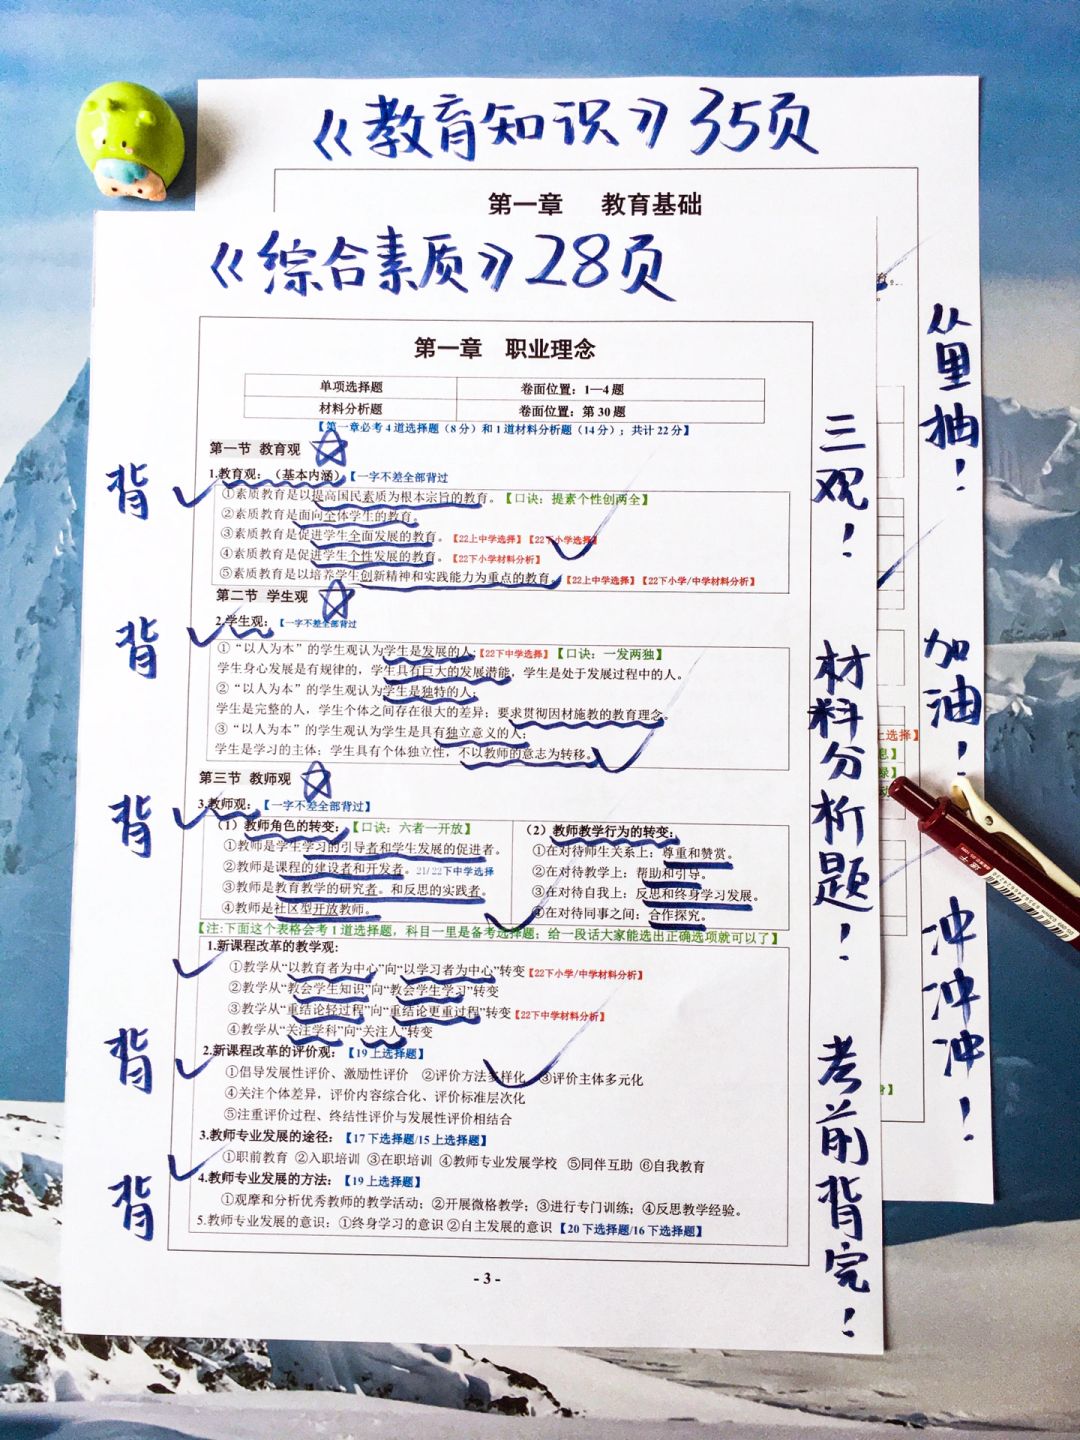 《教育知识》35页
第一章 教育基础
《综合素质》28页
第一章 职业理念
单项选择题 卷面位置：1—4题
材料分析题 卷面位置：第30题
【第一章必考4道选择题（8分）和1道材料分析题（14分）；共计22分】
第一节 教育观
背
1.教育观：（基本内涵）【一字不差全部背过
①素质教育是以提高国民素质为根本宗旨的教育。【口诀：提素个性创两全】
②素质教育是面向全体学生的教育。
③素质教育是促进学生全面发展的教育。【22上中学选择】【22下小学选择】
④素质教育是促进学生个性发展的教育。【22下小学材料分析】
⑤素质教育是以培养学生创新精神和实践能力为重点的教育。【22上中学选择】【22下小学/中学材料分析】
第二节 学生观
背
2.学生观：【一字不差全部背过
①“以人为本”的学生观认为学生是发展的人;【22下中学选择】【口诀：一发两独】
学生身心发展是有规律的，学生具有巨大的发展潜能，学生是处于发展过程中的人。
②“以人为本”的学生观认为学生是独特的人；
学生是完整的人，学生个体之间存在很大的差异；要求贯彻因材施教的教育理念。
③“以人为本”的学生观认为学生是具有独立意义的人；
学生是学习的主体；学生具有个体独立性，不以教师的意志为转移。
第三节 教师观
背
3.教师观：【一字不差全部背过】
（1）教师角色的转变：【口诀：六者一开放】
①教师是学生学习的引导者和学生发展的促进者。
②教师是课程的建设者和开发者。21/22下中学选择
③教师是教育教学的研究者。和反思的实践者。
④教师是社区型开放教师。
（2）教师教学行为的转变：
①在对待师生关系上：尊重和赞赏。
②在对待教学上：帮助和引导。
③在对待自我上：反思和终身学习发展。
④在对待同事之间：合作探究。
【注:下面这个表格会考1道选择题，科目一里是备考选择题；给一段话大家能选出正确选项就可以了】
1.新课程改革的教学观:
①教学从“以教育者为中心”向“以学习者为中心”转变【22下小学/中学材料分析】
②教学从“教会学生知识”向“教会学生学习”转变
③教学从“重结论轻过程”向“重结论更重过程”转变【22下中学材料分析】
④教学从“关注学科”向“关注人”转变
背
2.新课程改革的评价观:【19上选择题】
①倡导发展性评价、激励性评价 ②评价方法多样化 ③评价主体多元化
④关注个体差异，评价内容综合化、评价标准层次化
⑤注重评价过程、终结性评价与发展性评价相结合
3.教师专业发展的途径：【17下选择题/15上选择题】
①职前教育 ②入职培训 ③在职培训 ④教师专业发展学校 ⑤同伴互助 ⑥自我教育
背
4.教师专业发展的方法:【19上选择题】
①观摩和分析优秀教师的教学活动；②开展微格教学；③进行专门训练；④反思教学经验。
5.教师专业发展的意识：①终身学习的意识 ②自主发展的意识【20下选择题/16下选择题】
- 3 -
三观！
材料分析题！
考前背完！
从里抽！
加油！
冲冲冲！
上选择】